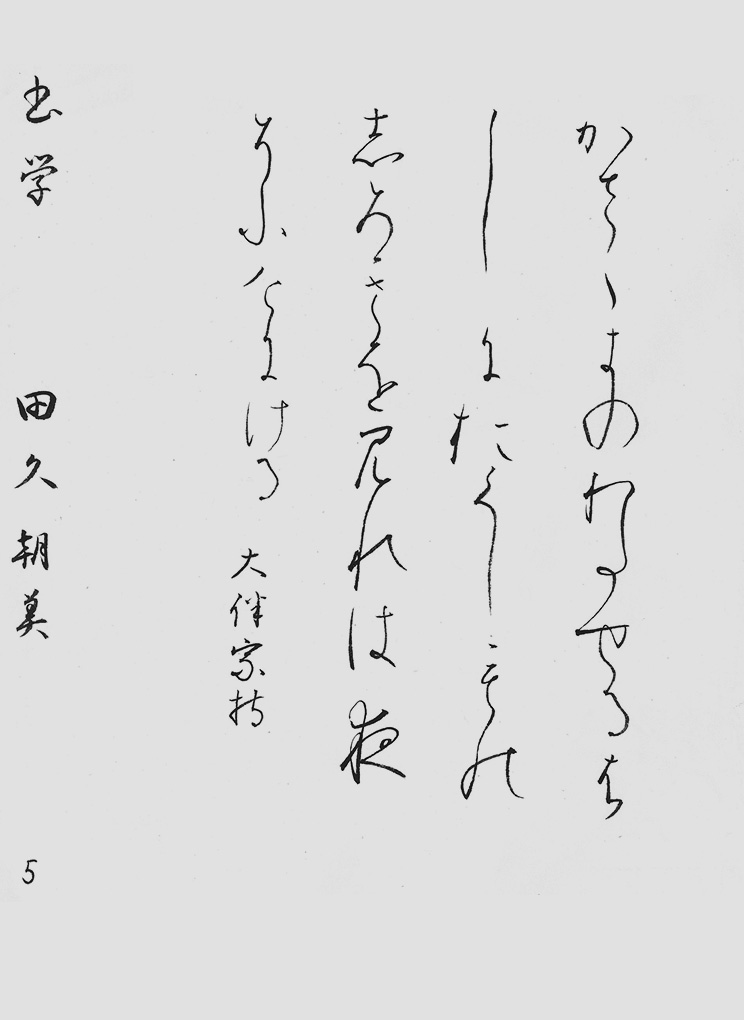 かさゝきのわたせるは
しにおくしもの
志ろきを見れは夜
そふけにける 大伴家持
書学 田久朝美
5